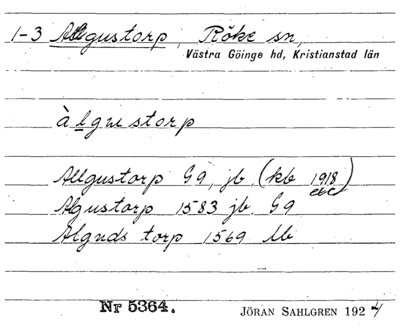 1-3 Allgustorp, Röke sn,
Västra Göinge hd, Kristianstad län
àlgustorp
Allgustorp G9, jb, (kb 1918)
Algustorp 1583 jb. G9
Algudstorp 1569
Nr 5364. JÖRAN SAHLGREN 1924